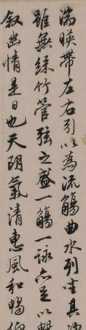 湍暎帶左右引以為流觴曲水列坐其
雖無絲竹管弦之盛一觴一詠亦足以暢
叙幽情是日也天朗氣清惠風和暢仰